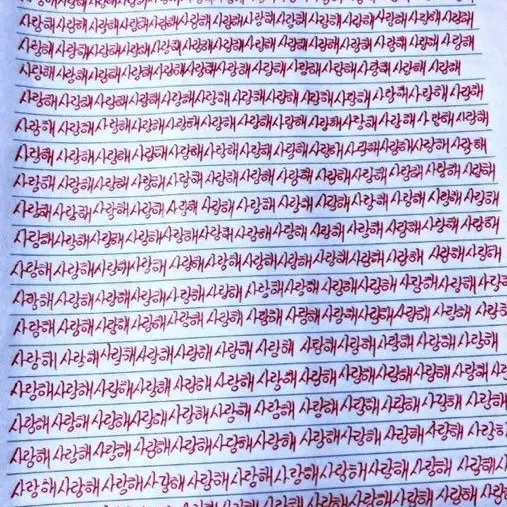 사랑해사랑해사랑해사랑해사랑해사랑해사랑해사랑해사랑해 사랑해 사랑해사랑해 사랑해
사랑해사랑해 사랑해사랑해사랑해사랑해사랑해 사랑해사랑해 사랑해 사랑해 사랑해 사랑해
사랑해사랑해 사랑해사랑해사랑해사랑해사랑해 사랑해사랑해 사랑해사랑해 사랑해 사랑해
사랑해사랑해 사랑해사랑해사랑해사랑해사랑해 사랑해사랑해사랑해 사랑해 사랑해 사랑해
사랑해사랑해 사랑해사랑해 사랑해사랑해 사랑해사랑해 사랑해 사랑해 사랑해사랑해 사랑해
사랑해 사랑해 사랑해사랑해사랑해 사랑해 사랑해사랑해 사랑해사랑해 사랑해 사랑해 사랑해
사랑해 사랑해사랑해 사랑해사랑해사랑해사랑해 사랑해사랑해 사랑해사랑해사랑해 사랑해
사랑해 사랑해사랑해 사랑해사랑해 사랑해 사랑해 사랑해사랑해사랑해 사랑해 사랑해 사랑해
사랑해사랑해 사랑해사랑해 사랑해 사랑해 사랑해 사랑해 사랑해사랑해 사랑해 사랑해 사랑해
사랑해사랑해사랑해 사랑해사랑해사랑해사랑해사랑해 사랑해 사랑해 사랑해 사랑해 사랑해
사랑해 사랑해사랑해사랑해 사랑해사랑해사랑해사랑해사랑해사랑해 사랑해 사랑해사랑해
사랑해 사랑해사랑해 사랑해사랑해 사랑해 사랑해사랑해 사랑해사랑해 사랑해 사랑해사랑해
사랑해 사랑해사랑해 사랑해사랑해 사랑해 사랑해 사랑해 사랑해사랑해사랑해 사랑해 사랑해
사랑해 사랑해 사랑해사랑해사랑해 사랑해 사랑해 사랑해사랑해 사랑해 사랑해 사랑해
사랑해사랑해 사랑해사랑해사랑해 사랑해 사랑해 사랑해사랑해 사랑해사랑해 사랑해
사랑해 사랑해 사랑해사랑해 사랑해사랑해 사랑해사랑해 사랑해사랑해 사랑해 사랑해
사랑해 사랑해 사랑해 사랑해사랑해사랑해사랑해 사랑해 사랑해 사랑해 사랑해 사랑해
사랑해 사랑해 사랑해 사랑해사랑해 사랑해 사랑해사랑해사랑해사랑해 사랑해 사랑해